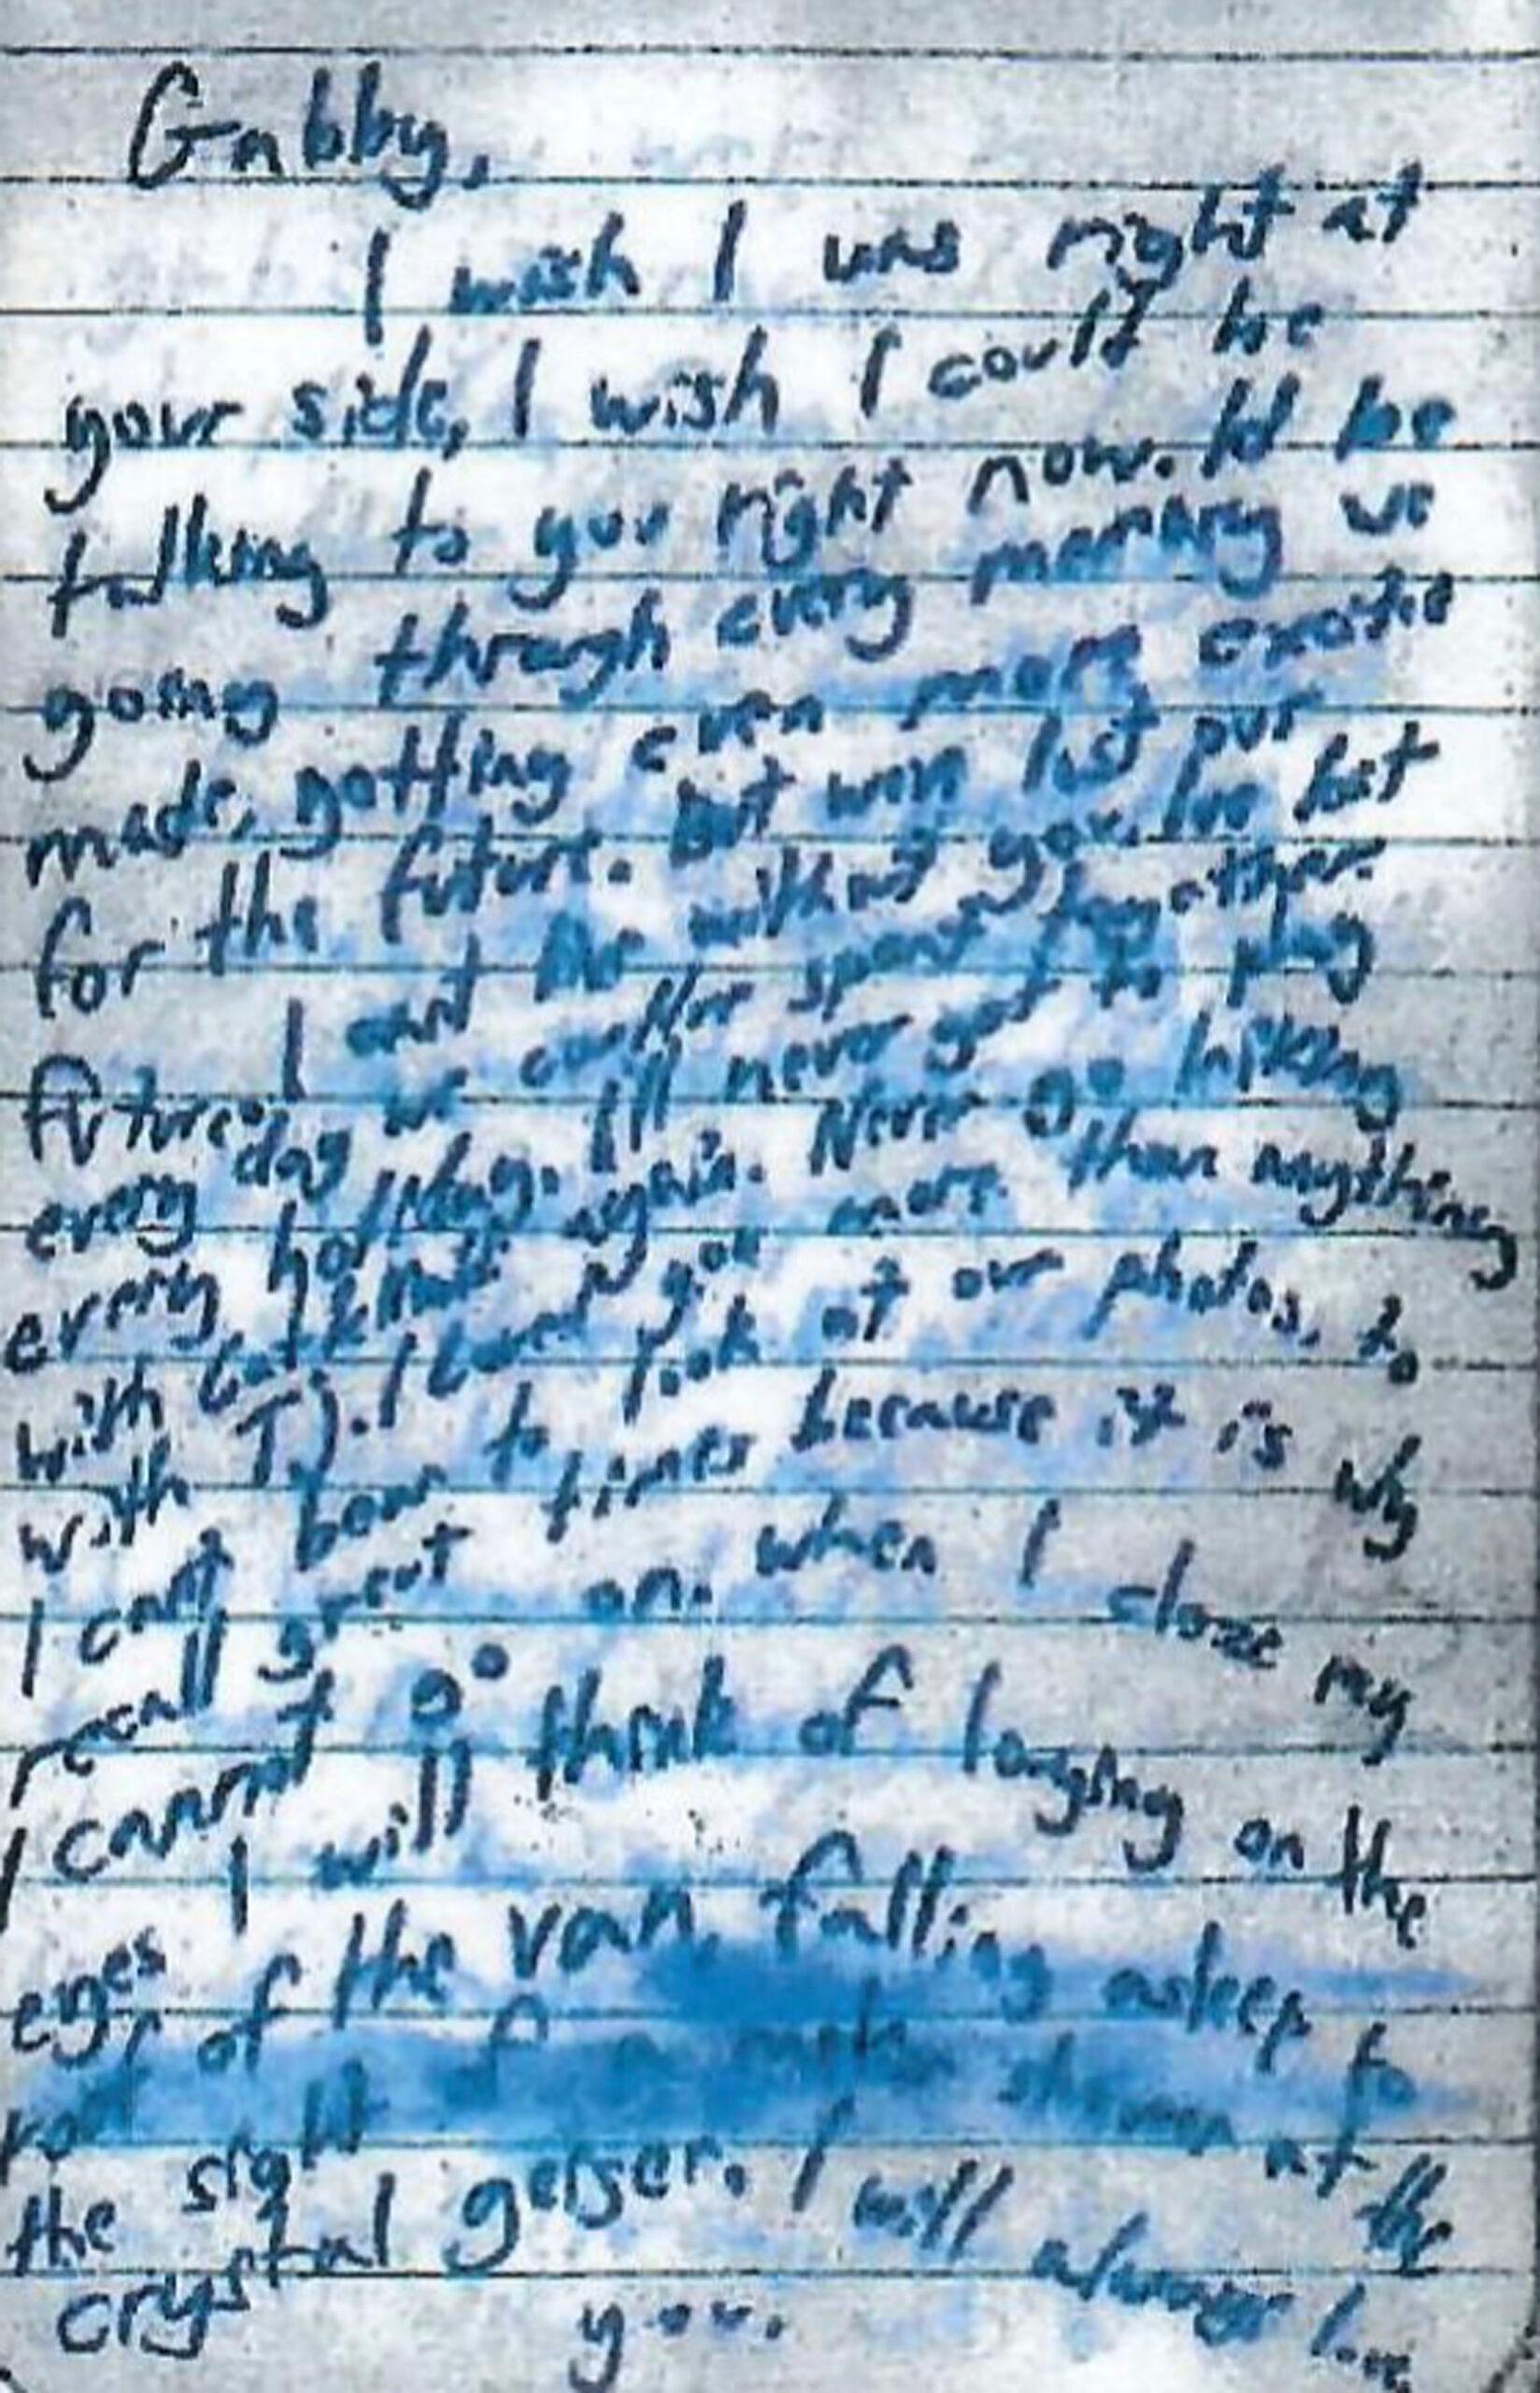 Gabby,
I wish I was right at
your side, I wish I could be
talking to you right now. Id be
going through every memory we
made, getting even more excited
for the future. But we've lost our
future. I can't live without you. I've lost
every day we could've spent together.
every holiday. I'll never get to play
with again. Never go hiking
with TJ. I loved you more than anything
I can't bear to look at our photos, to
recall great times because it is why
I cannot go on. When I close my
eyes I will think of laughing on the
roof of the van, falling asleep to
the sight of at the
crystal geiser. I will always love
you.